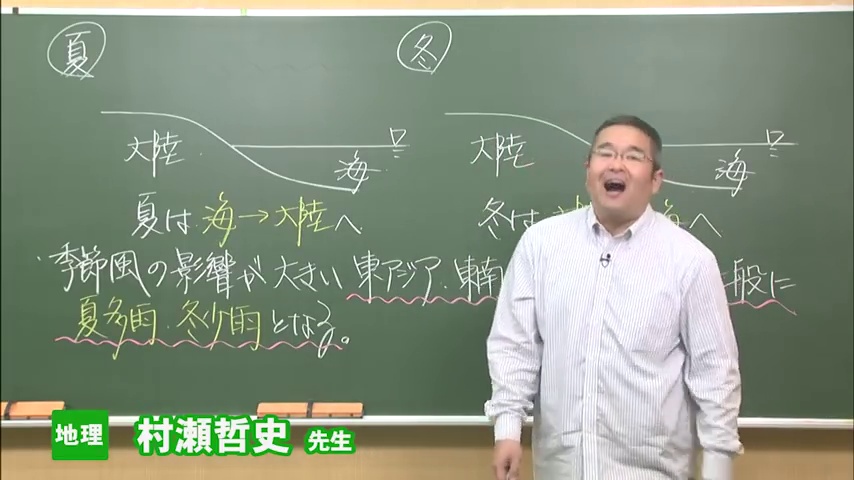 夏
冬
大陸
海
大陸
海
夏は 海→大陸へ
冬は 海へ
季節風の影響が 大きい 東アジア・東南
般に
夏多雨・冬少雨となる。
地理 村瀬哲史 先生